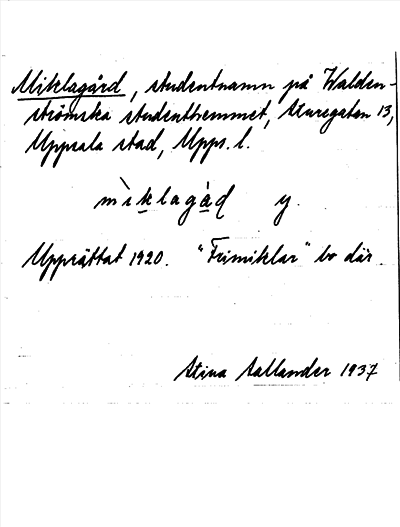 Miklagård, studentnamn på Walden-
strömska studenthemmet, Sturegatan 13,
Uppsala stad, Upps. l.
mìklagàd y.
Upprättat 1920. "Frimiklar" bo där.
Stina Sallander 1937